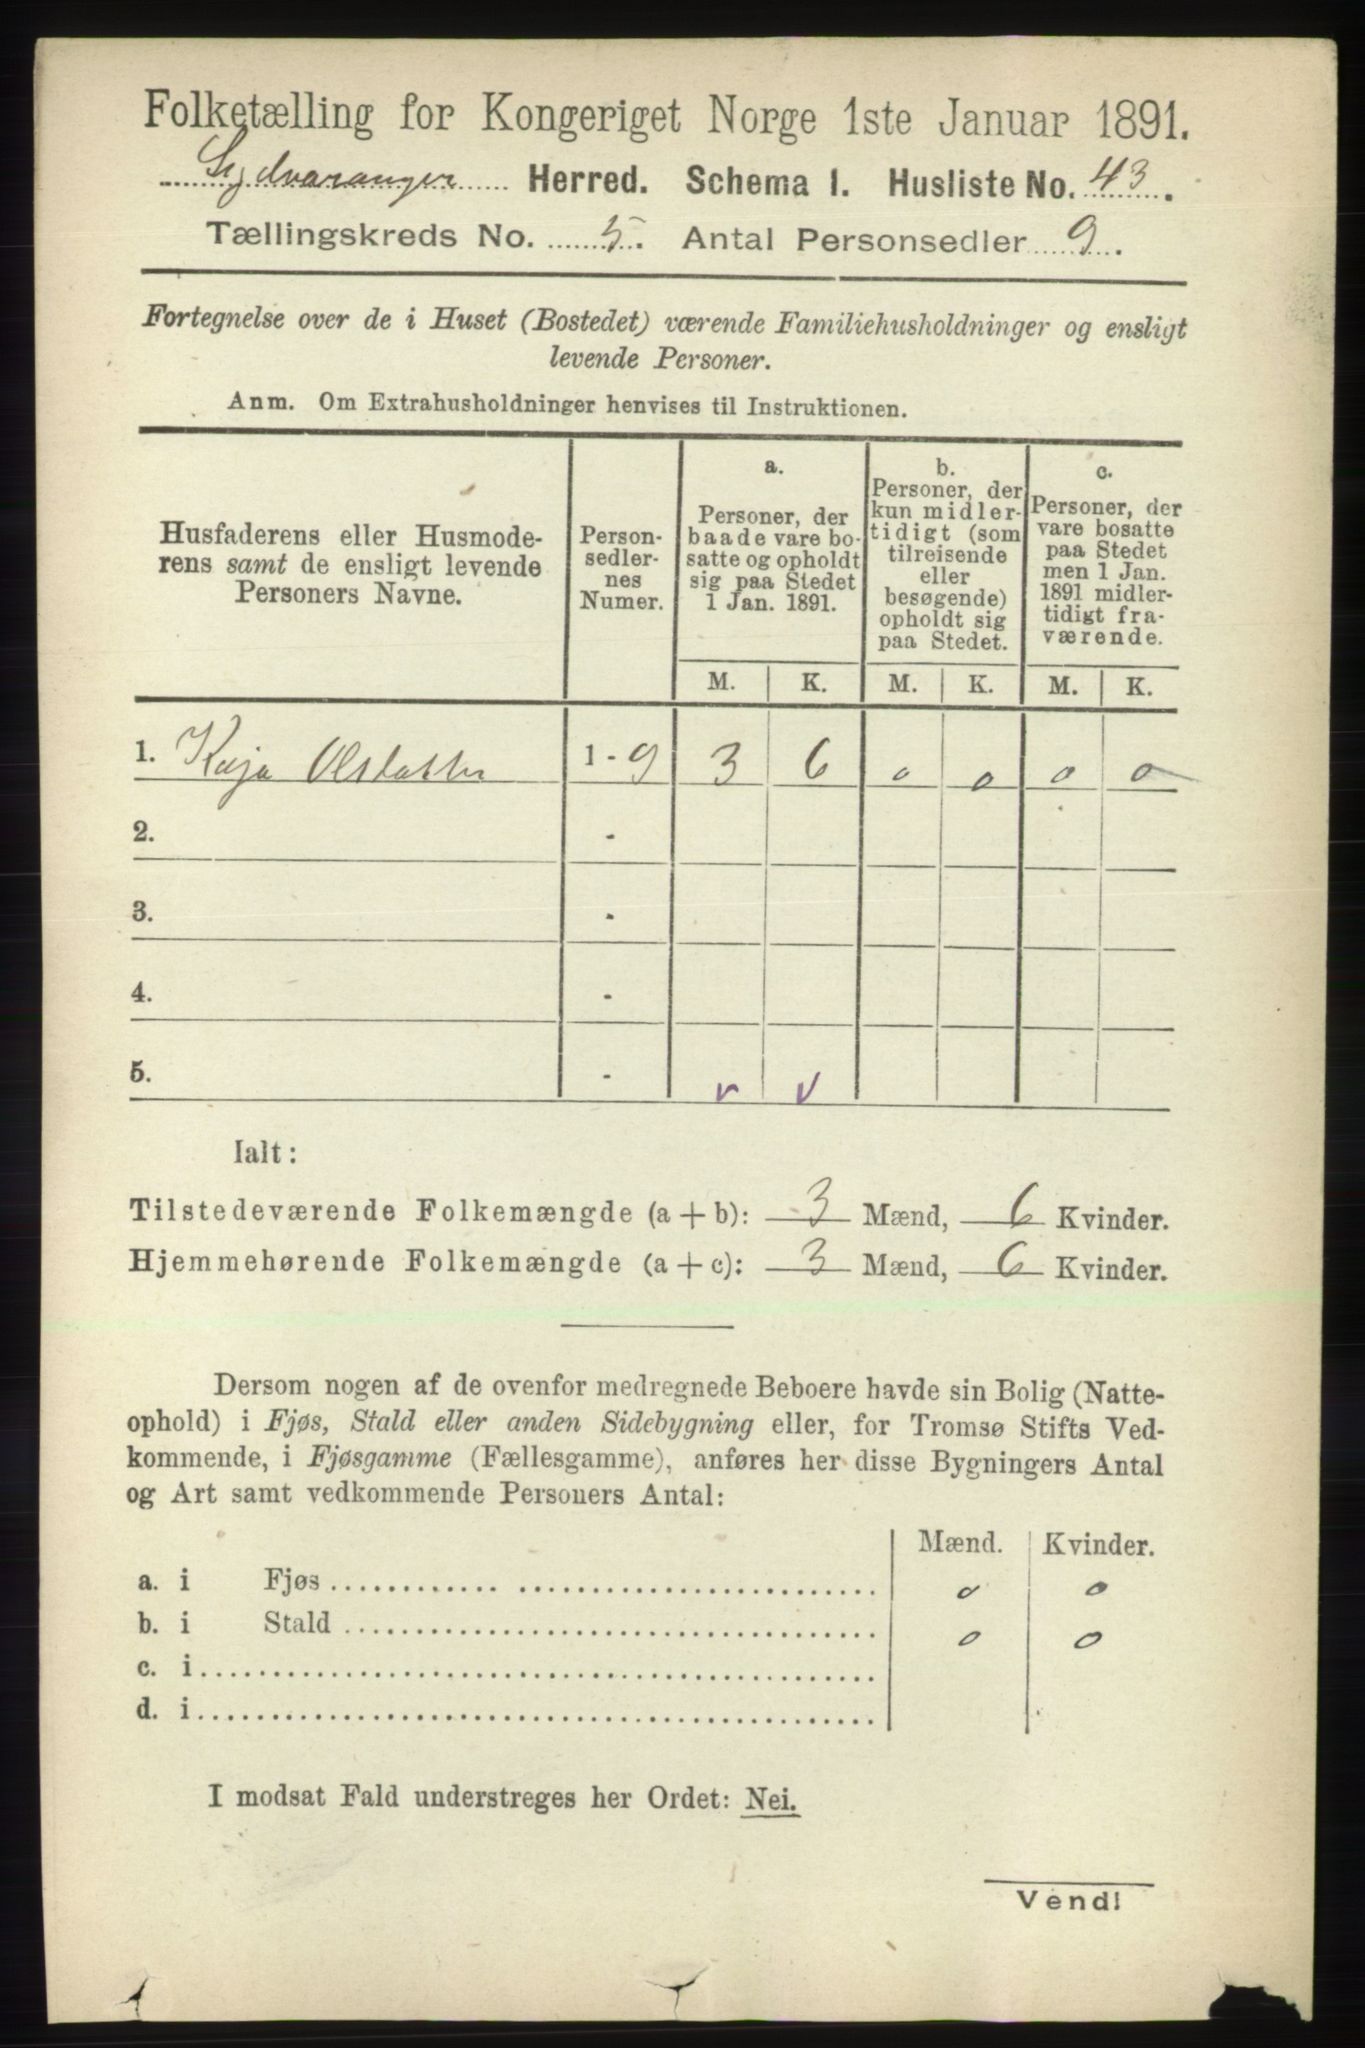 Folketælling for Kongeriget Norge 1ste Januar 1891.
Sydvaranger Herred. Schema 1. Husliste No. 43.
Tællingskreds No. 5. Antal Personsedler 9.
Fortegnelse over de i Huset (Bostedet) værende Familiehusholdninger og ensligt
levende Personer.
Anm. Om Extrahusholdninger henvises til Instruktionen.
Husfaderens eller Husmode-
rens samt de ensligt levende
Personers Navne.
Person-
sedler-
nes
Numer.
a.
Personer, der
baade vare bo-
satte og opholdt
sig paa Stedet
1 Jan. 1891.
b.
Personer, der
kun midler-
tidigt (som
tilreisende
eller
besøgende)
opholdt sig
paa Stedet.
c.
Personer, der
vare bosatte
paa Stedet
men 1 Jan.
1891 midler-
tidigt fra-
værende.
M. K. M. K. M. K.
1. Kaja Olsdatter 1-9 3 6 0 0 0 0
2. -
3. -
4. -
5. - v v
Ialt:
Tilstedeværende Folkemængde (a + b): 3 Mænd, 6 Kvinder.
Hjemmehørende Folkemængde (a + c): 3 Mænd, 6 Kvinder.
Dersom nogen af de ovenfor medregnede Beboere havde sin Bolig (Natte-
ophold) i Fjøs, Stald eller anden Sidebygning eller, for Tromsø Stifts Ved-
kommende, i Fjøsgamme (Fællesgamme), anføres her disse Bygningers Antal
og Art samt vedkommende Personers Antal:
Mænd. Kvinder.
a. i Fjøs 0 0
b. i Stald 0 0
c. i
d. i
I modsat Fald understreges her Ordet: Nei.
Vend!